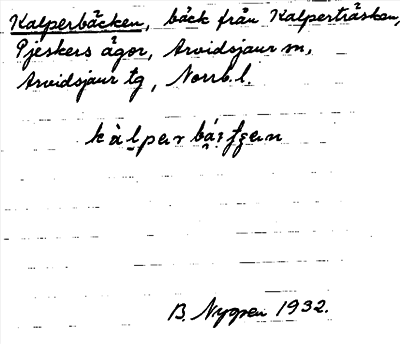 Kalperbäcken, bäck från Kalperträsken,
Pjeskers ägor, Arvidsjaur sn,
Arvidsjaur tg, Norrb. l.
B. Nygren 1932.